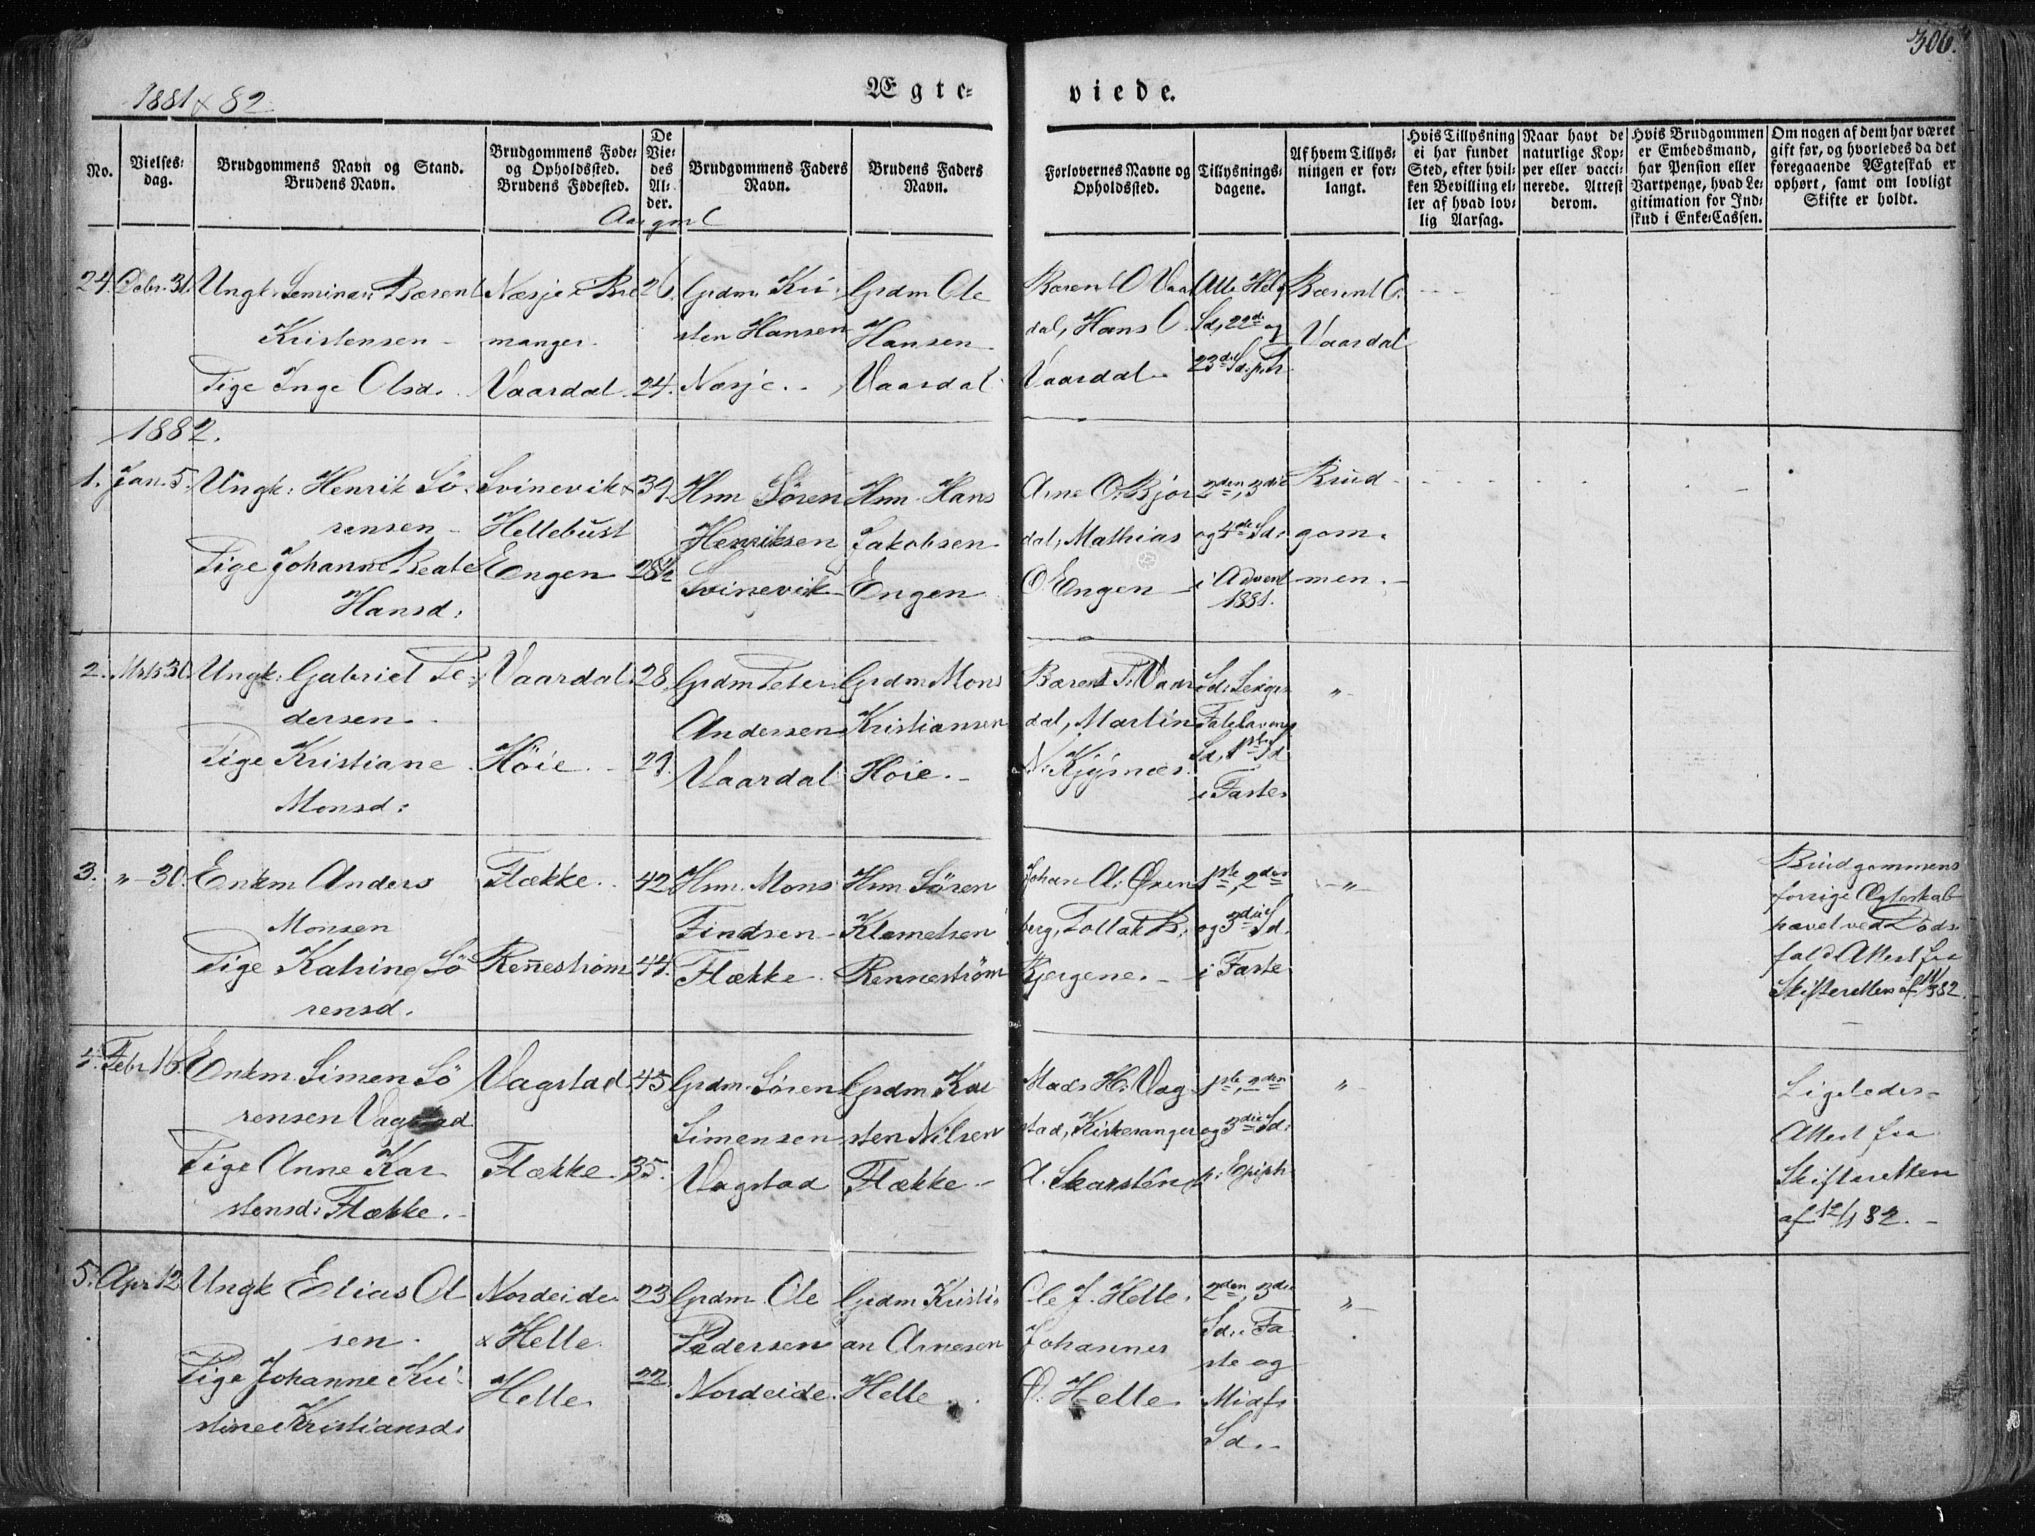 306.
1881 & 82
Ægte-
viede.
No.
Vielses-
dag.
Brudgommens Navn og Stand.
Brudens Navn.
Brudgommens Føde-
og Opholdssted.
Brudens Fødested.
De
Vie-
des
Al-
der.
Brudgommens Faders
Navn.
Brudens Faders
Navn.
Forlovernes Navne og
Opholdssted.
Tillysnings-
dagene.
Af hvem Tillys-
ningen er for-
langt.
Hvis Tillysning
ei har fundet
Sted, efter hvil-
ken Bevilling el-
ler af hvad lov-
lig Aarsag.
Naar havt de
naturlige Kop-
per eller vacci-
nerede. Attest
derom.
Hvis Brudgommen
er Embedsmand,
har Pension eller
Vartpenge, hvad Le-
gitimation for Ind-
skud i Enke-Cassen.
Om nogen af dem har været
gift før, og hvorledes da det
foregaaende Ægteskab er
ophørt, samt om lovligt
Skifte er holdt.
24.
Ungk. Seminar: Bærent
Kristensen
Tige Inge Olsd.
Næsje & Bre
manger
Vaardal
26.
24.
Grdm. Kri
sten Hansen
Næsje.
Grdm Ole
Hansen
Vaardal
Bærent O Vaar
dal, Hans O.
Vaardal
Alle Helg
Sd, 22de og
23de Sd. p. Tr.
Bærent O.
Vaardal
1882.
1. Jan. 5.
Ungk: Henrik Sö-
rensen
Tige Johanne Beate
Hansd:
Svinevik &
Hellebust
Engen
39.
28½
Hmn Søren
Henriksen
Svinevik
Hmn. Hans
Jakobsen
Engen
Arne O. Bjor
dal, Mathias
O Engen
2den, 3die
og 4de Sd.
i Advent
1881.
Brud
gom-
men.
2. Mrts 30.
Ungk: Gabriel Pe-
dersen.
Tige Kristiane
Monsd:
Vaardal
Höie.
28.
21.
Grdm Peter
Andersen
Vaardal
Grdm Mons
Kristiansen
Höie.
Bærent P. Vaar
dal, Martin
Sd,
i Faste
"
3. " 30.
Enkm Anders
Monsen
Tige Katrine Sö
rensd.
Flække.
Renneström
42.
44.
Hmn. Mons
Findsen
Flække.
Hmn Søren
Klemetsen
Renneström
Johan A. Øren
berg, Tollak B.
Kjergene.
1ste, 2den
og 3die Sd.
i Faste
"
Brudgommens
forrige Ægteskab
hævet ved Döds-
fald. Attest fra
Skifteretten af
4. Febr 16.
Enkm. Simen Sö
rensen Vagstad
Tige Anne Kar
stensd: Flække.
Vagstad
Flække.
45.
35.
Grdm. Søren
Simensen
Vagstad
Grdm Kar
sten Nilsen
Flække
Mads H. Vag-
stad, Kirkesanger
A. Skarsten
1ste, 2den
og 3die Sd.
p. Epiph.
"
Ligeledes
Attest fra
Skifteretten
af 12/1 82.
5. Apr 12.
Ungk Elias Ol
sen.
Tige Johanne Kri-
stine Kristiansd.
Nordeide
& Helle.
Helle.
23
22.
Grdm. Ole
Pedersen
Nordeide.
Grdm Kristi
an Arnesen
Helle.
Ole J. Helle.
Johannes
O. Helle.
2den, 3die
Sd. i Fa
ste og
Midf.
Sd.
"